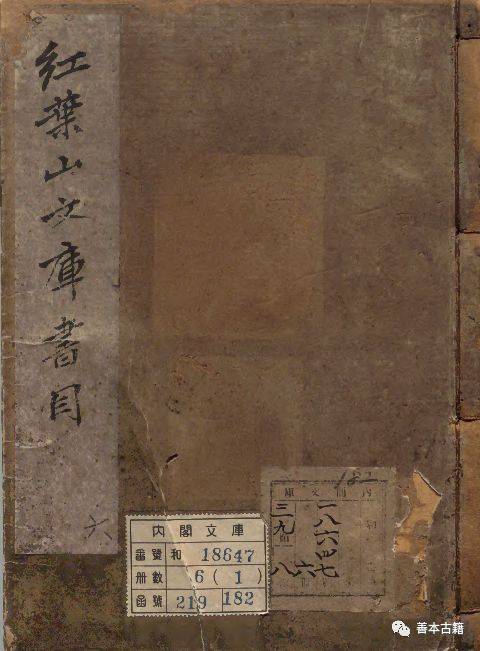 紅葉山文庫書目
六
内閣文庫
番號 和 18647
册數 6(1)
函號 219 182
182
内閣文庫
一八六四七
三九
八六
善本古籍